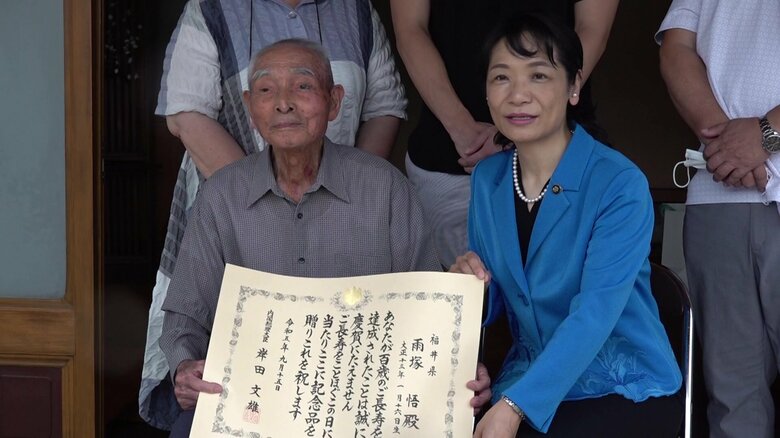 福井県
雨塚 悟殿
大正十三年 一月十六日生
あなたが百歳のご長寿を
達成されたことは誠に
慶賀にたえません
ご長寿をことほぐこの日に
当たりここに記念品を
贈りこれを祝します
令和五年九月十五日
内閣総理大臣 岸田文雄